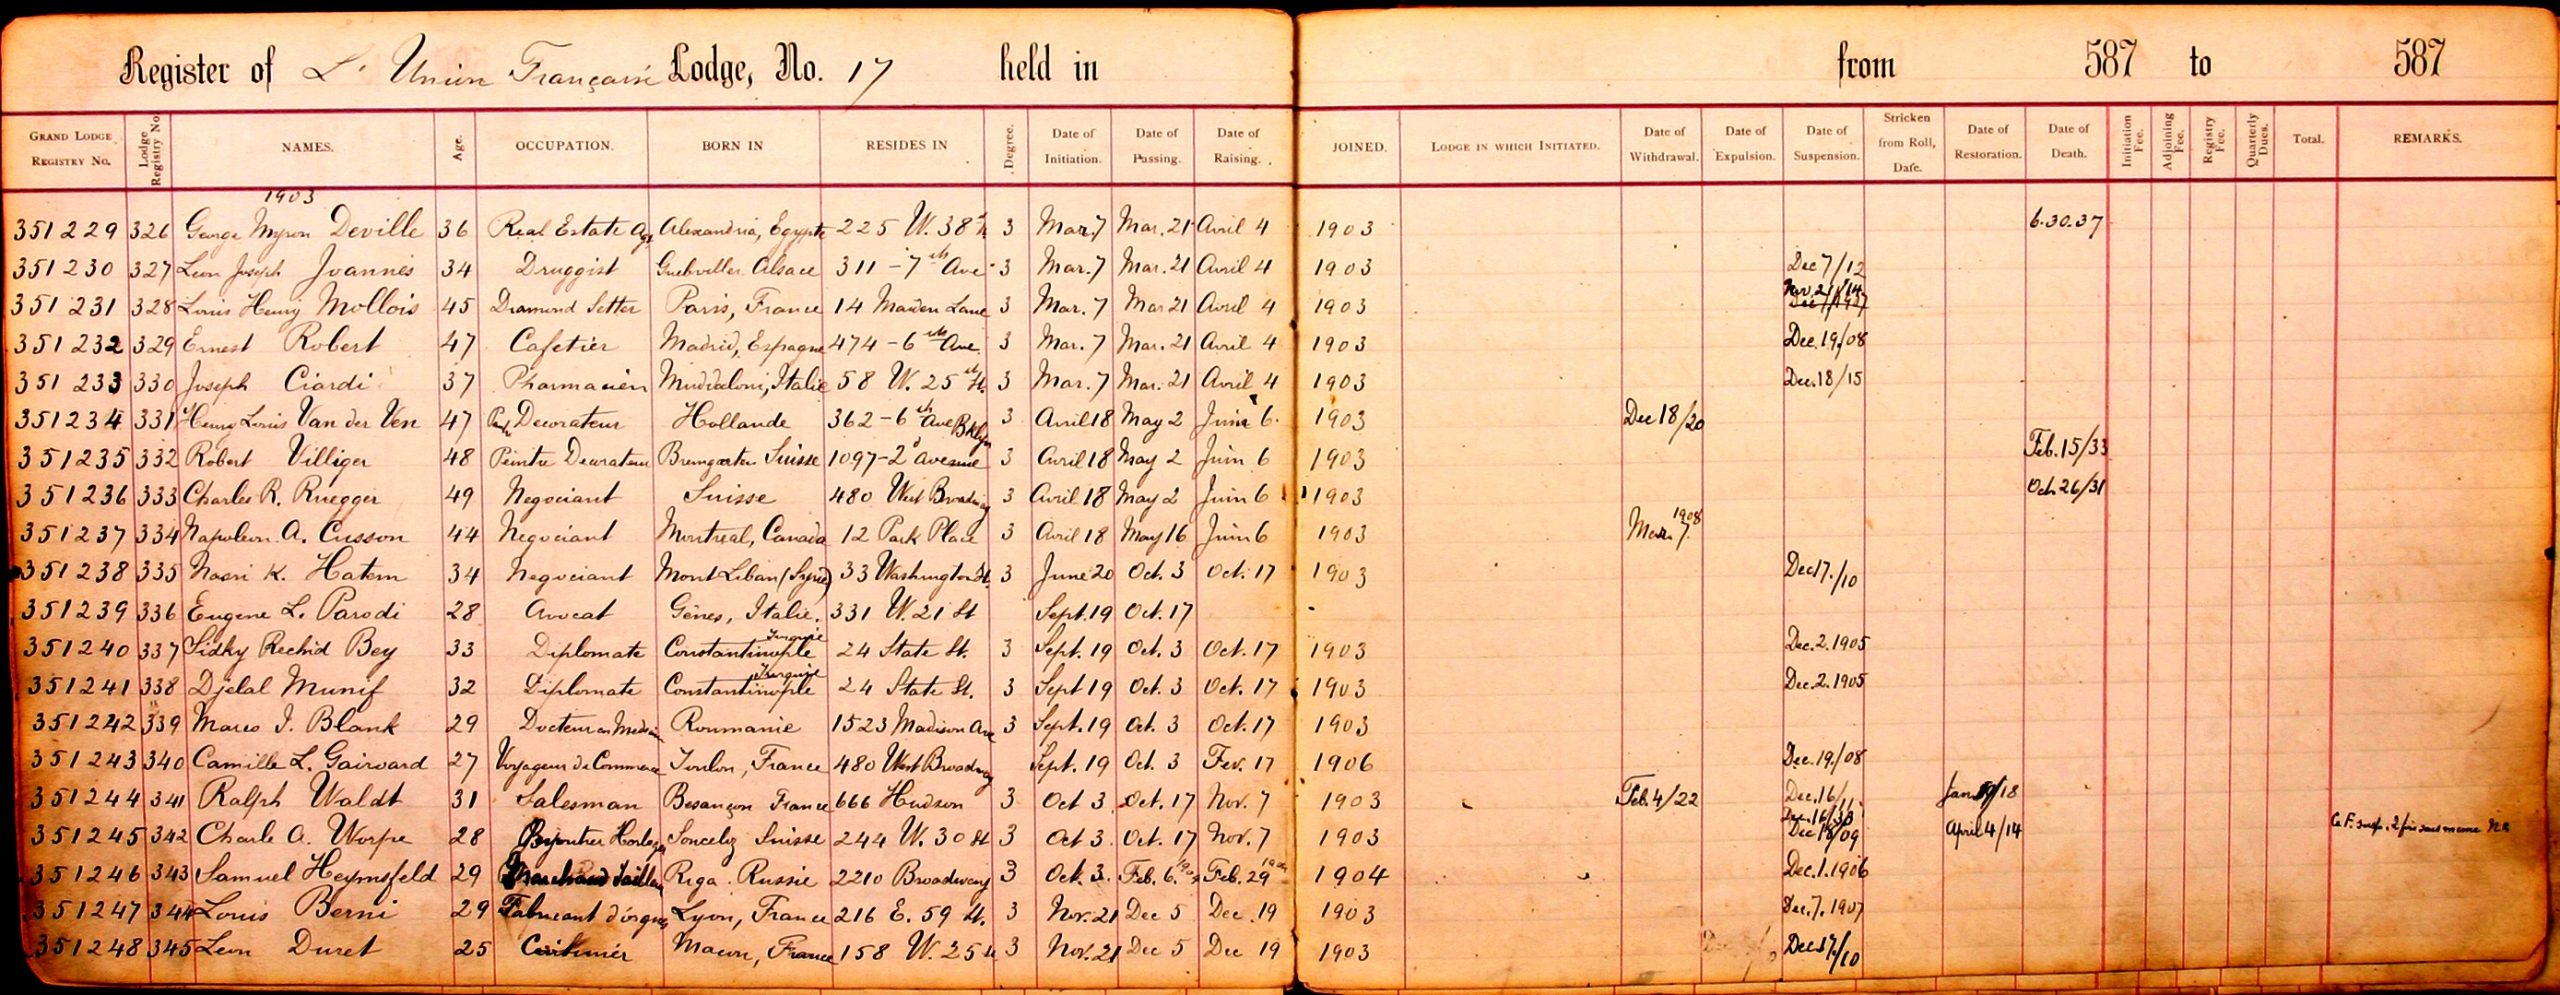 Register of L' Union Française Lodge, No. 17 held in from 587 to 587
GRAND LODGE REGISTRY No. Lodge Registry No. NAMES. Age. OCCUPATION. BORN IN RESIDES IN Degree. Date of Initiation. Date of Passing. Date of Raising. JOINED. LODGE IN WHICH INITIATED. Date of Withdrawal. Date of Expulsion. Date of Suspension. Stricken from Roll, Date. Date of Restoration. Date of Death. Initiation Fee. Adjoining Fee. Registry Fee. Quarterly Dues. Total. REMARKS.
1903
351229 326 George Myron Deville 36 Real Estate Agt Alexandria, Egypte 225 W. 38 3 Mar. 7 Mar. 21 Avril 4 1903 6.30.37
351230 327 Leon Joseph Joannès 34 Druggist Guebviller Alsace 311 - 7th Ave 3 Mar. 7 Mar. 21 Avril 4 1903 Dec 7/12
351231 328 Louis Henry Mollois 45 Diamond Setter Paris, France 14 Maiden Lane 3 Mar. 7 Mar 21 Avril 4 1903 Nov. 21/14
351232 329 Ernest Robert 47 Cafetier Madrid, Espagne 474 - 6th Ave. 3 Mar. 7 Mar. 21 Avril 4 1903 Dec. 19/08
351233 330 Joseph Ciardi 37 Pharmacien Muddaloni, Italie 58 W. 25th St. 3 Mar. 7 Mar. 21 Avril 4 1903 Dec. 18/15
351234 331 Henry Louis Van der Ven 47 Decorateur Hollande 362 - 6th Ave Bklyn 3 Avril 18 May 2 Juin 6. 1903 Dec 18/20
351235 332 Robert Villiger 48 Peintre Decorateur Bremgarten Suisse 1097 - 2d Avenue 3 Avril 18 May 2 Juin 6 1903 Feb. 15/33
351236 333 Charles R. Ruegger 49 Negociant Suisse 480 West Broadway 3 Avril 18 May 2 Juin 6 1903 Oct. 26/31
351237 334 Napoleon A. Cusson 44 Negociant Montreal, Canada 12 Park Place 3 Avril 18 May 16 Juin 6 1903 Mar. 7. 1908
351238 335 Nasri K. Hatem 34 Negociant Mont Liban (Syrie) 33 Washington St. 3 June 20 Oct. 3 Oct. 17 1903 Dec 17./10
351239 336 Eugene L. Parodi 28 Avocat Gênes, Italie. 331 W. 21 St Sept. 19 Oct. 17
351240 337 Sidky Rechid Bey 33 Diplomate Constantinople Turquie 24 State St. 3 Sept. 19 Oct. 3 Oct. 17 1903 Dec. 2. 1905
351241 338 Djelal Munif 32 Diplomate Constantinople Turquie 24 State St. 3 Sept 19 Oct. 3 Oct. 17 1903 Dec. 2. 1905
351242 339 Marco I. Blank 29 Docteur en Medecine Roumanie 1523 Madison Ave 3 Sept. 19 Oct. 3 Oct. 17 1903
351243 340 Camille L. Gairoard 27 Voyageur de Commerce Toulon, France 480 West Broadway Sept. 19 Oct. 3 Fev. 17 1906 Dec. 19./08
351244 341 Ralph Waldt 31 Salesman Besançon France 666 Hudson 3 Oct 3 Oct. 17 Nov. 7 1903 Feb. 4/22 Dec. 16/11 Jan /18
351245 342 Charle A. Worpe 28 Bijoutier Horloger Sonceboz Suisse 244 W. 30 St 3 Oct 3. Oct. 17 Nov. 7 1903 Dec. 16/38 Dec 18/09 April 4/14
351246 343 Samuel Heymsfeld 29 Marchand Tailleur Riga. Russie 2210 Broadway 3 Oct. 3. Feb. 6. Feb. 29 1904 Dec. 1. 1906
351247 344 Louis Berni 29 Fabricant d'orgues Lyon, France 216 E. 59 St. 3 Nov. 21 Dec 5 Dec. 19 1903 Dec. 7. 1907
351248 345 Leon Duret 25 Macon, France 158 W. 25 St 3 Nov. 21 Dec 5 Dec 19 1903 Dec 17/10